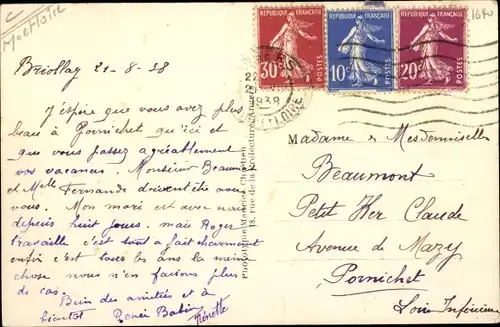 Briollay 21-8-38
J'espère que vous avez plus
beau à Pornichet qu'ici et
que vous passez agréablement
vos vacances. Monsieur Beaumont
et Melle Fernande doivent être avec
vous. Mon mari est avec nous
depuis huit jours. mais Roger
travaille c'est tout a fait charmant
enfin c'est tous les ans la même
chose nous n'en faisons plus
de cas.
Bien des amitiés et à
bientot Renée Babin
RÉPUBLIQUE FRANÇAISE
30c
POSTES
RÉPUBLIQUE FRANÇAISE
10c
POSTES
RÉPUBLIQUE FRANÇAISE
20c
POSTES
1938
Phototypie Maurice Chrétien
18, rue de la Préfecture
Madame & Mesdemoiselles
Beaumont
Petit Ker Claude
Avenue de Mazy
Pornichet
Loire Inférieure